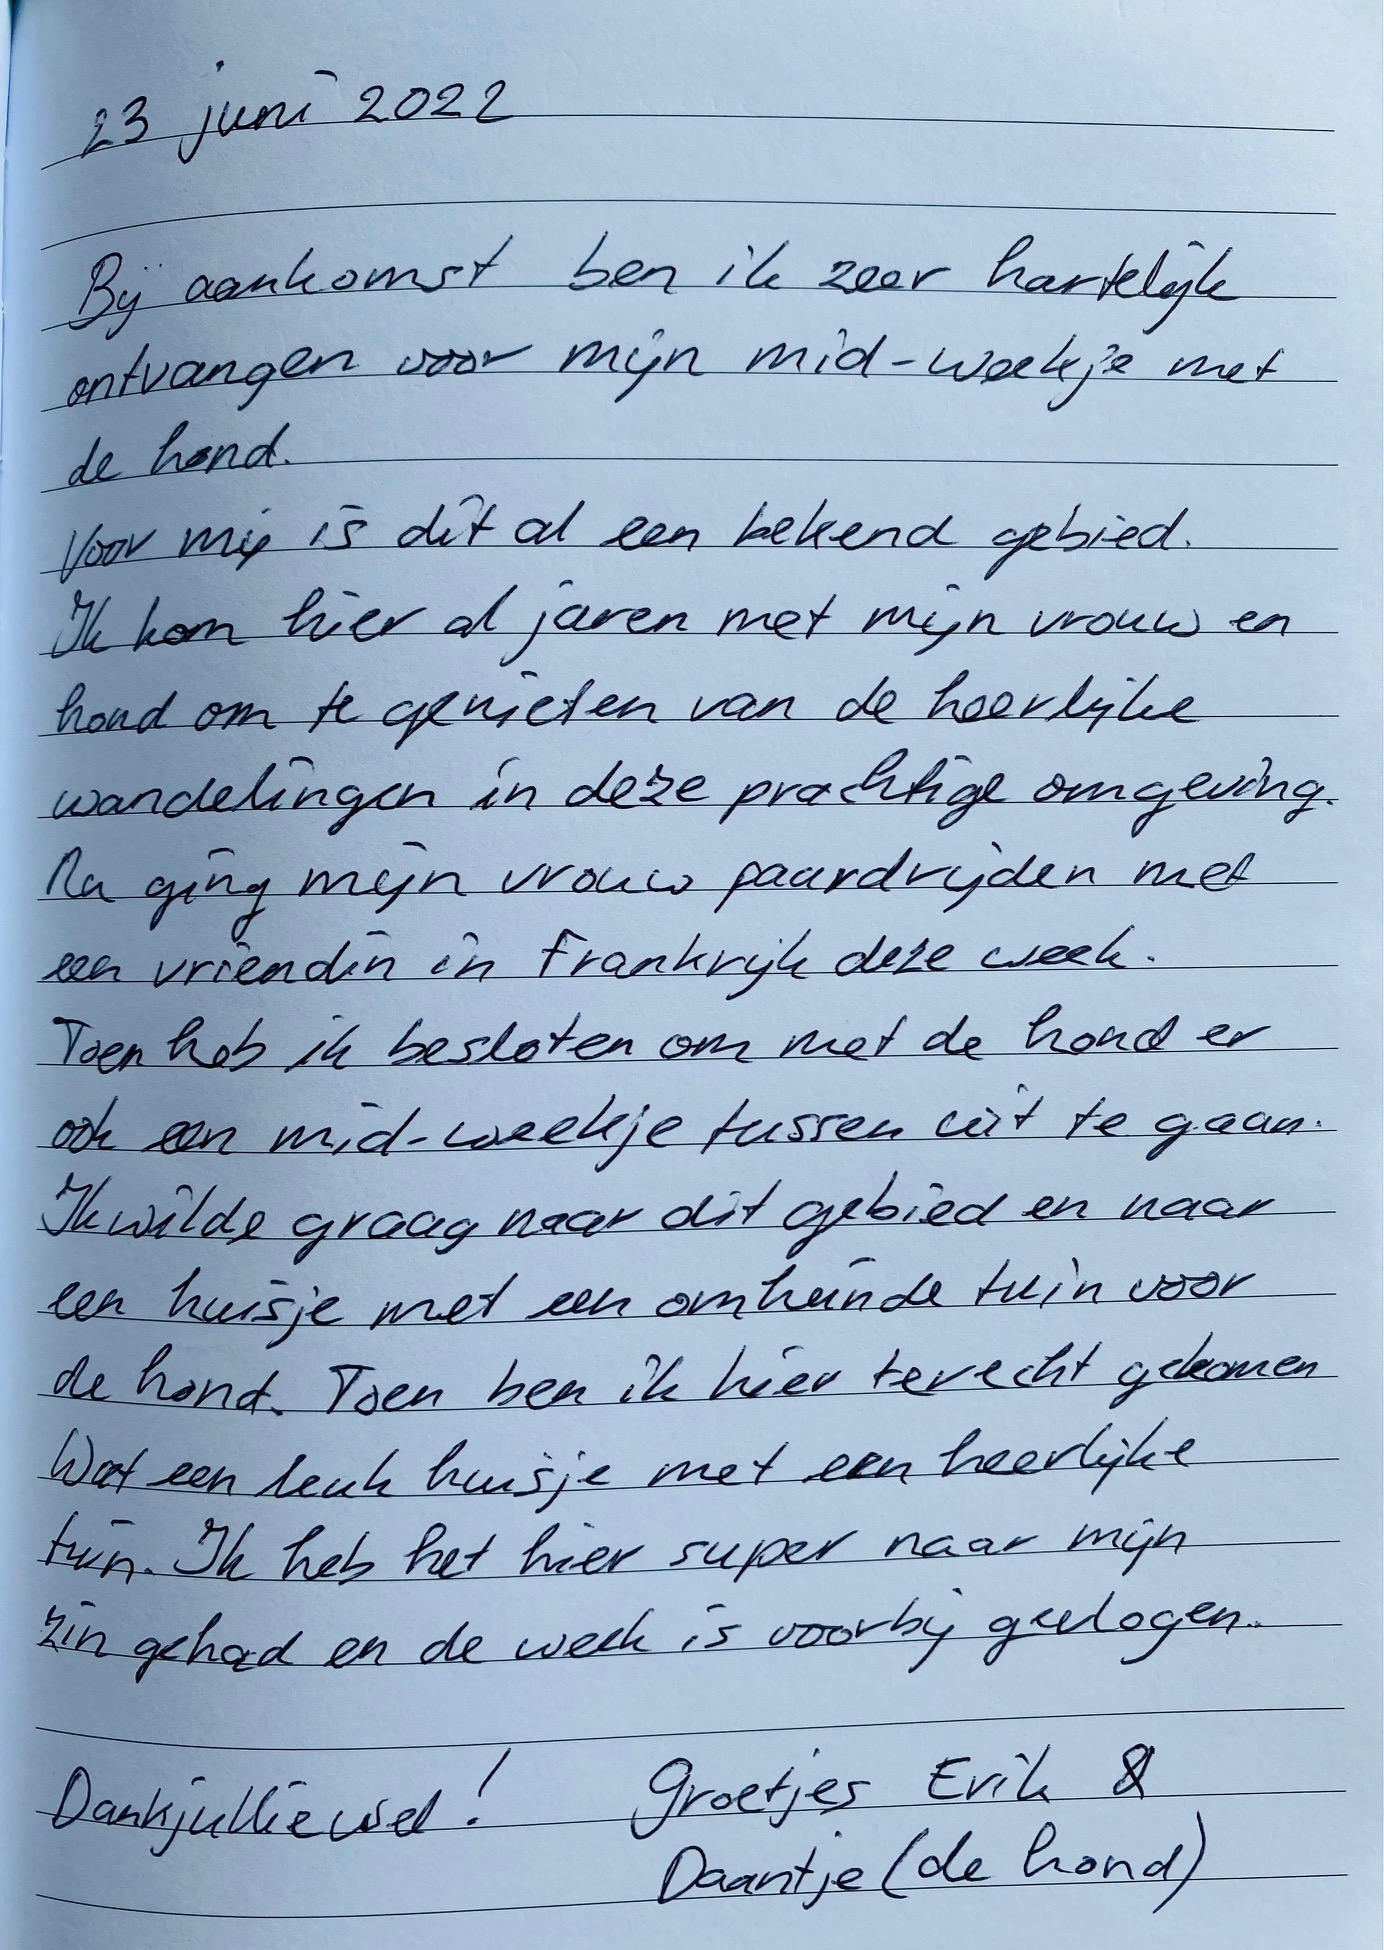 23 juni 2022
Bij aankomst ben ik zeer hartelijk
ontvangen voor mijn mid-weekje met
de hond.
Voor mij is dit al een bekend gebied.
Ik kom hier al jaren met mijn vrouw en
hond om te genieten van de heerlijke
wandelingen in deze prachtige omgeving.
Nu ging mijn vrouw paardrijden met
een vriendin in Frankrijk deze week.
Toen heb ik besloten om met de hond er
ook een mid-weekje tussen uit te gaan.
Ik wilde graag naar dit gebied en naar
een huisje met een omheinde tuin voor
de hond. Toen ben ik hier terecht gekomen
Wat een leuk huisje met een heerlijke
tuin. Ik heb het hier super naar mijn
zin gehad en de week is voorbij gevlogen.
Dankjulliewel! Groetjes Erik &
Daantje (de hond)